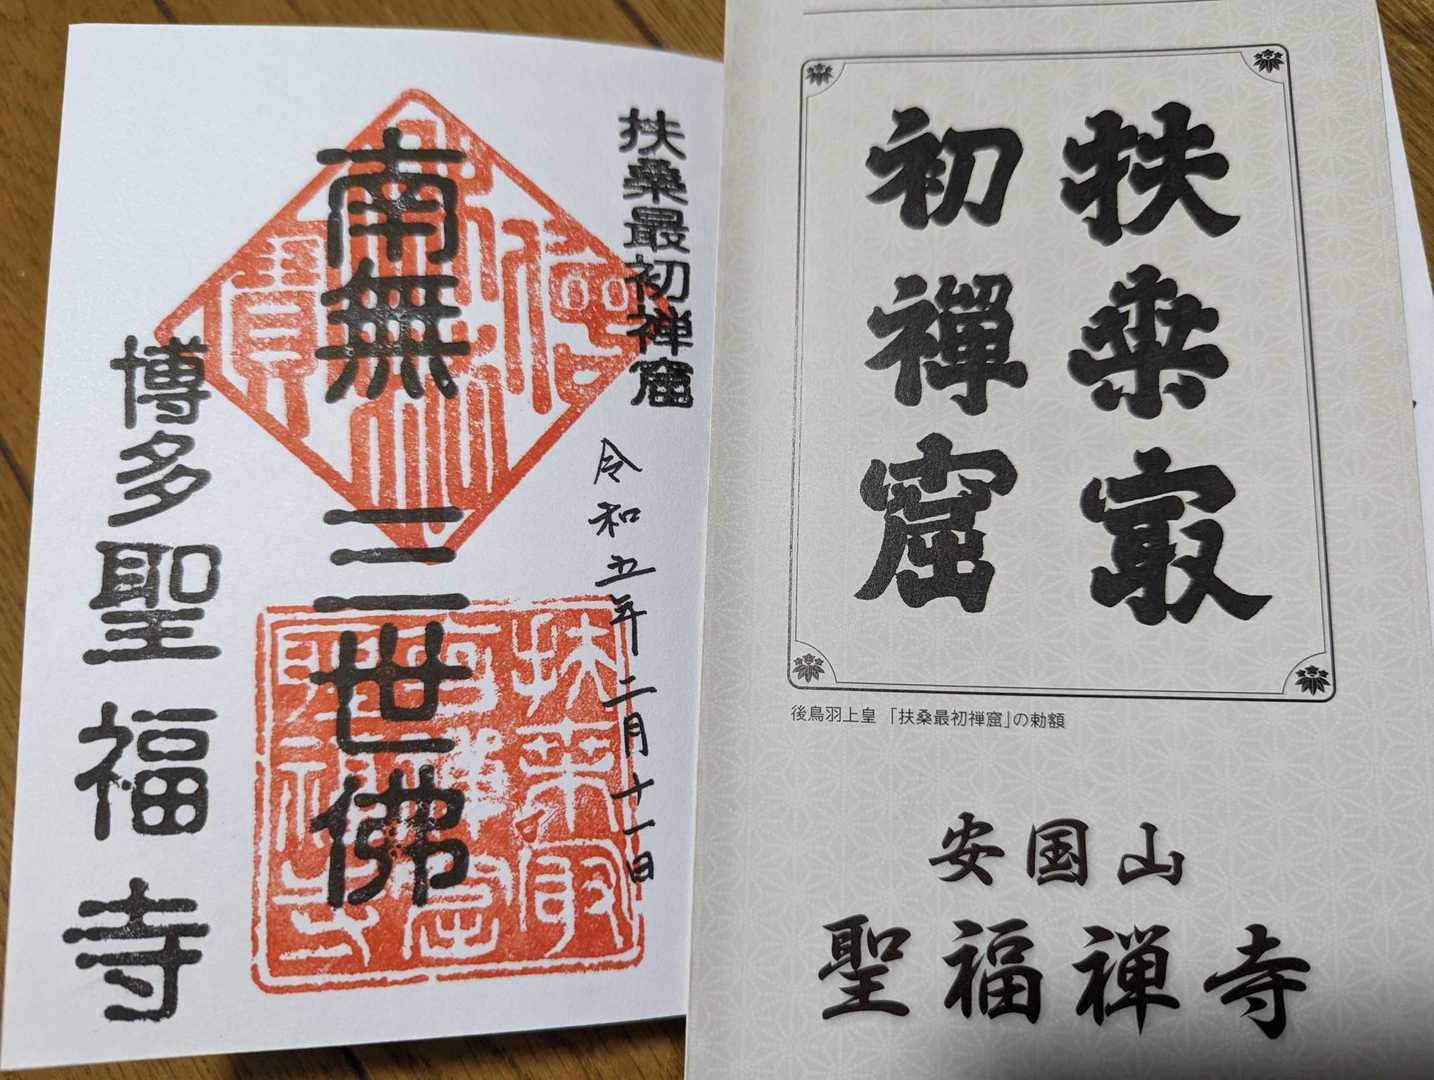 扶桑最初禅窟
令和五年二月十一日
南無三世佛
博多聖福寺
佛法僧寶
扶桑最
初禅窟
聖福寺
扶桑最
初禪窟
後鳥羽上皇 「扶桑最初禅窟」の勅額
安国山
聖福禅寺